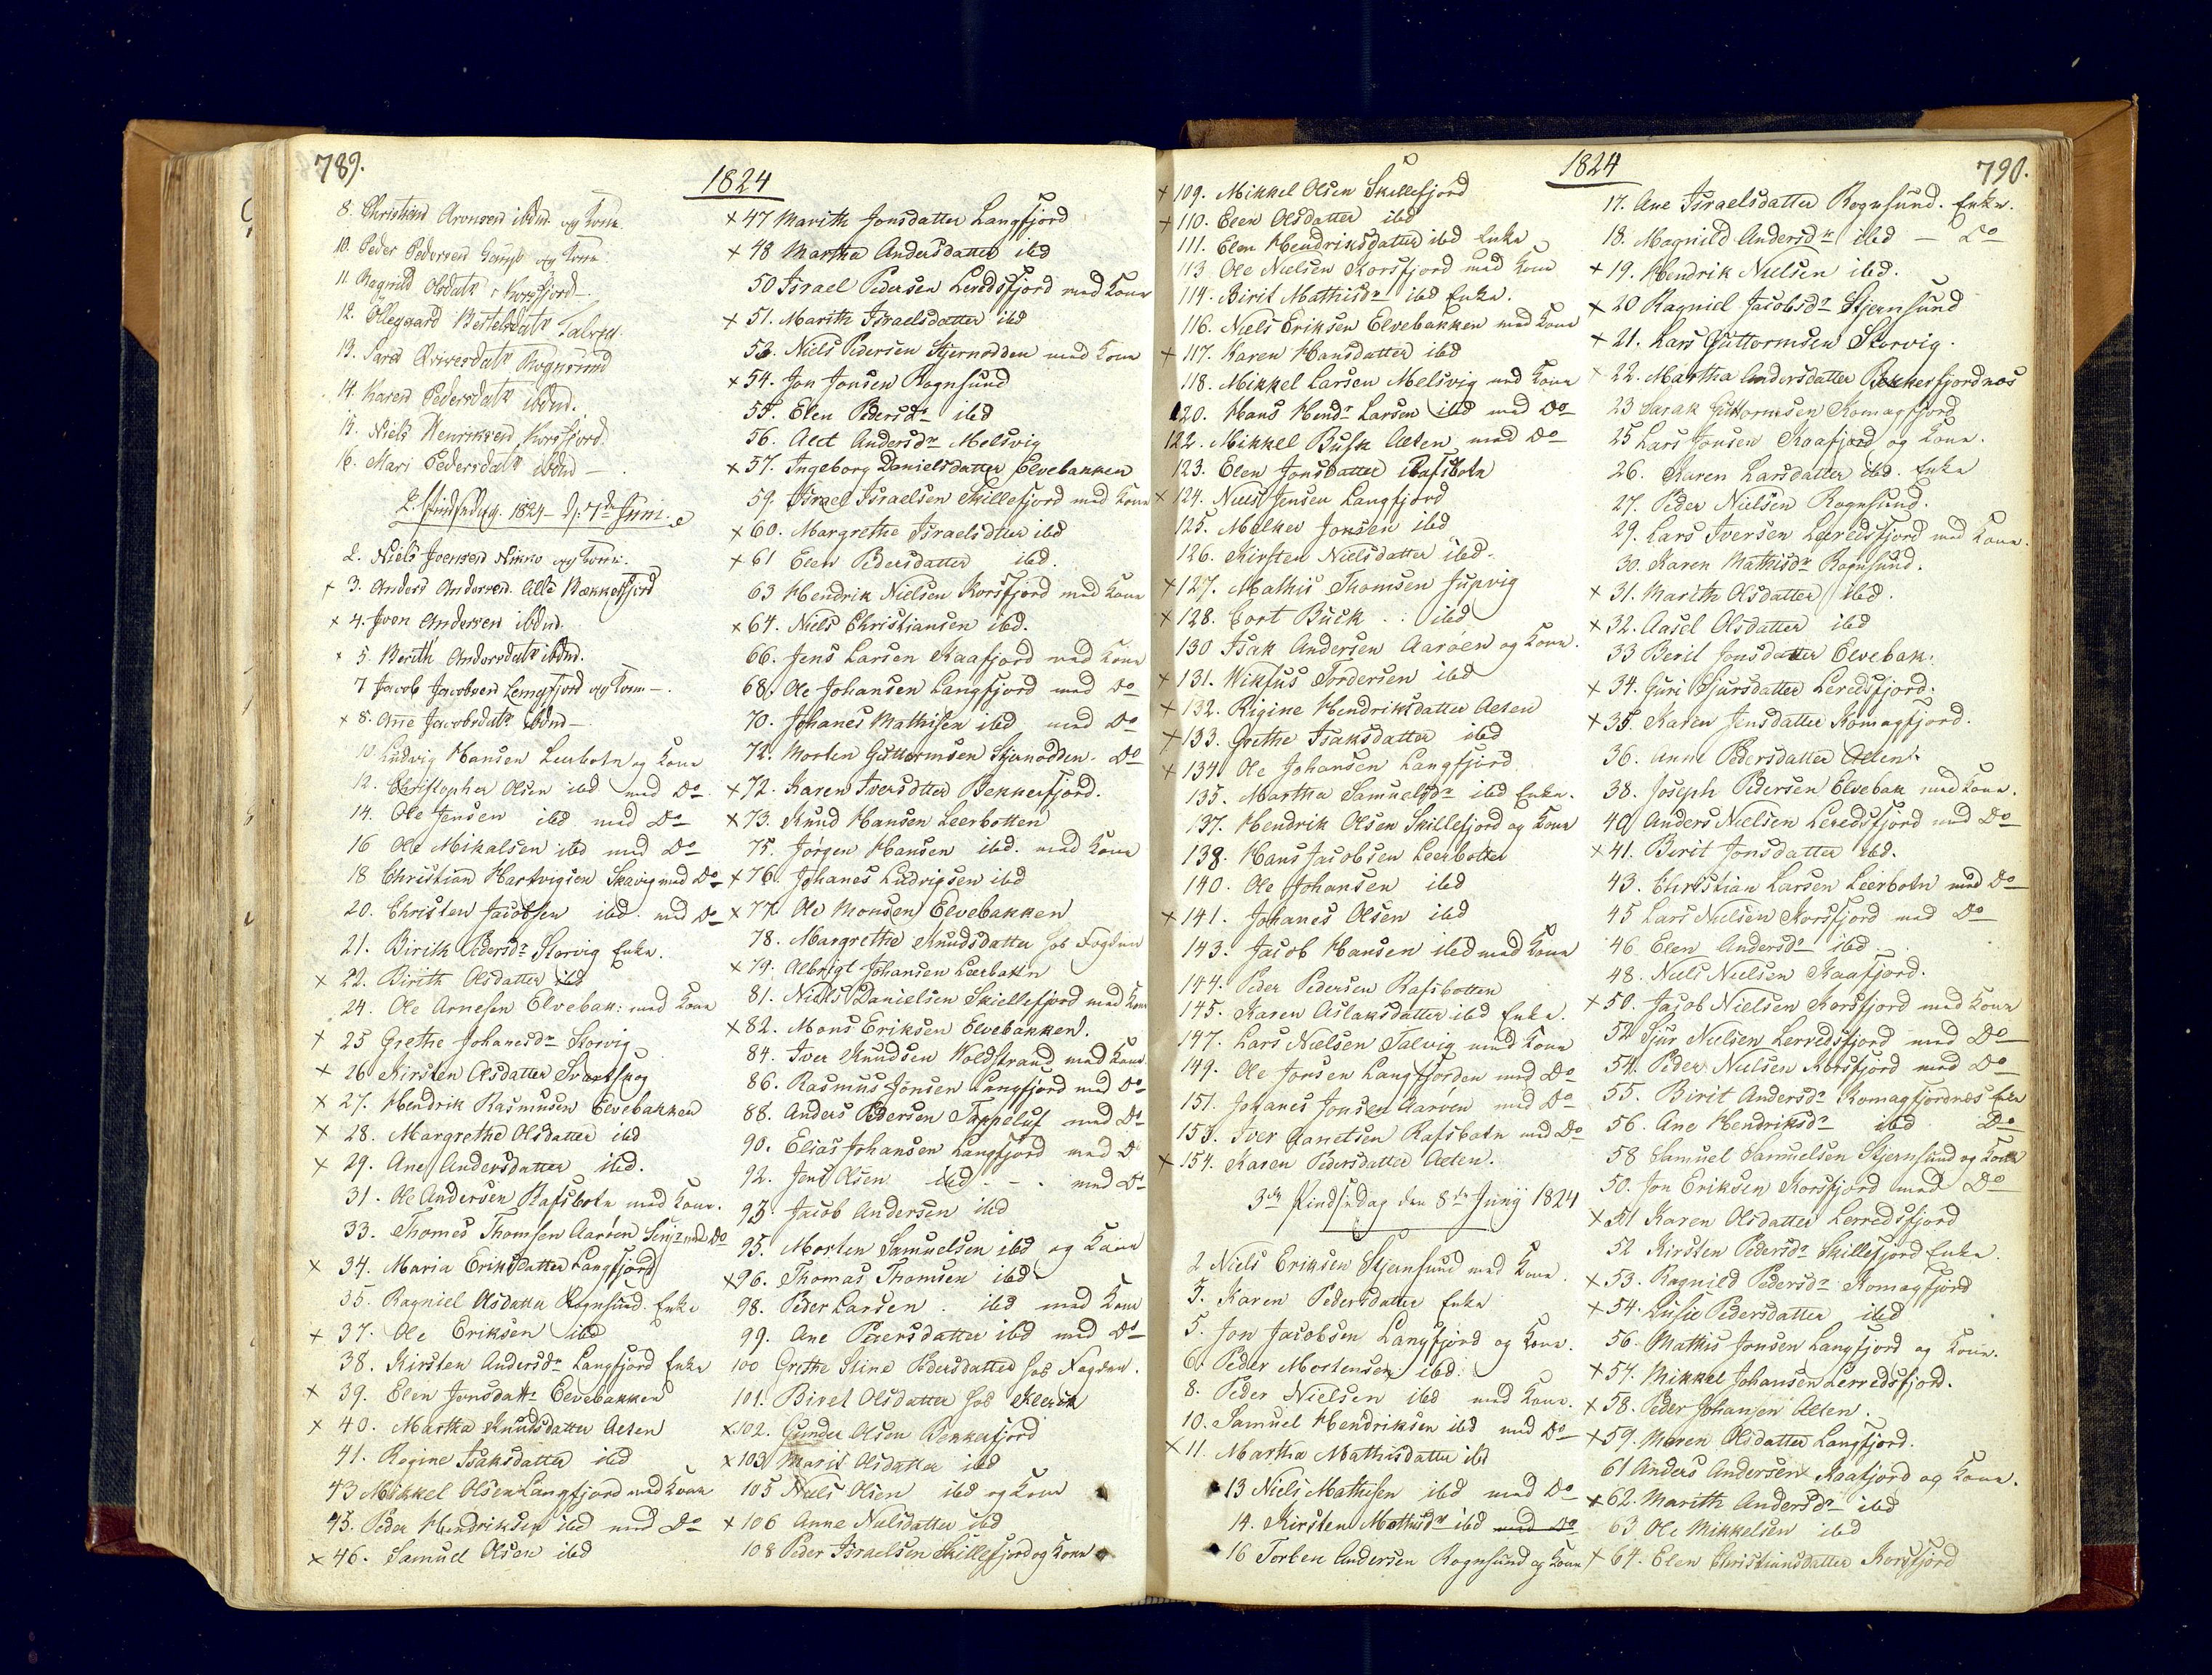 789.
1824
8. Christian Aronsen ibdm. og Kone.
10. Peder Pedersen og Kone.
11. Ragnild Olsdatr Korsfjord
12. Ollegaard Bertelsdatr Talvig.
13. Sara Rognsund
14. Karen Pedersdatr ibdm.
15. Niels Henriksen Korsfjord.
16. Mari Pedersdatr ibdm
2. Pindsedag. 1824 d: 7de Juni
2. Niels Iversen og Kone.
x 3. Anders Andersen Bekkerfjord
x 4. Iver Andersen ibdm.
x 5. Berith Andersdatr ibdm.
7 Jacob Jacobsen Langfjord og Kone
x 8. Ane Jacobsdatr ibdm
10. Ludvig Hansen Leerbotn og Kone
12. Christopher Olsen ibd med Do
14. Ole Jensen ibd med Do
16 Ole Mikalsen ibd med Do
18 Christian Hartvigsen Skavig med Do
20. Christen Jacobsen ibd. med Do
21. Birith Pedersdr Storvig Enke.
x 22. Birith Olsdatter ibd
24. Ole Arnesen Elvebak: med Kone
x 25 Grethe Johanesdr Storvig
x 26 Kirsten Olsdatter Svartskog
x 27. Hendrik Rasmusen Elvebakken
x 28. Margrethe Olsdatter ibd
x 29. Ane Andersdatter ibd.
31. Ole Andersen Rafsbotn med Kone.
33. Thomes Thomsen Aarøen Senr med Do
x 34. Maria Eriksdatter Langfjord
35. Ragniel Olsdatter Rognsund Enke
x 37. Ole Eriksen ibd
38. Kirsten Andersdr Langfjord Enke
x 39. Elen Jonsdattr Elvebakken
x 40. Martha Knudsdatter Alten
41. Regine Isaksdatter ibd
43 Mikkel Olsen Langfjord med Kone
45. Peder Hendriksen ibd med Do
x 46. Samuel Olsen ibd
x 47 Marith Jonsdatter Langfjord
x 48 Martha Andersdatter ibd
50 Israel Pedersen Leredsfjord med Kone
x 51. Marith Israelsdatter ibd
53. Niels Pedersen Stjernodden med Kone
x 54. Jon Jonsen Rognsund
55. Elen Pedersdr ibd
56. Alet Andersdr Melsvig
x 57. Ingeborg Danielsdatter Elvebakken
59. Israel Israelsen Skillefjord med Kone
x 60. Margrethe Israelsdtter ibd
x 61 Elen Pedersdatter ibd.
63 Hendrik Nielsen Korsfjord med Kone
x 64. Niels Christiansen ibd.
66. Jens Larsen Kaafjord med Kone
68. Ole Johansen Langfjord med Do
70. Johanes Mathisen ibd med Do
72. Morten Guttormsen Stjernodden. Do
x 72. Karen Iversdtter Bekkerfjord.
x 73. Knud Hansen Leerbotten
75. Jørgen Hansen ibd. med Kone
x 76. Johanes Ludvigsen ibd
x 77. Ole Monsen Elvebakken
78. Margrethe Knudsdatter hos Fogden
x 79. Albrigt Johansen Leerbotn
81. Niels Danielsen Skillefjord med Kone
x 82. Mons Eriksen Elvebakken.
84. Iver Knudsen Woldstrand med Kone
86. Rasmus Jonsen Langfjord med Do
88. Anders Pedersen Tappeluf med Do
90. Elias Johansen Langfjord med D
92. Jens Olsen ibd. - . med Do
93. Jacob Andersen ibd
95. Morten Samuelsen ibd og Kone
x 96. Thomas Thomsen ibd
98. Peder Larsen. ibd med Kone
99. Ane Pedersdatter ibd med Do
100 Grethe Stine Pedersdatter hos Fogden.
101. Biret Olsdatter hos Klerck
x 102. Gunder Olsen Bekkerfjord
x 103 Marit Olsdatter ibd
105 Niels Olsen ibd og Kone
x 106 Anne Nielsdatter ibd
108 Peder Israelsen Skillefjord og Kone
1824
790.
x 109. Mikkel Olsen Skillefjord
x 110. Elen Olsdatter ibd
111. Elen Hendriksdatter ibd Enke
113 Ole Nielsen Korsfjord med Kone
114. Birit Mathisdr ibd Enke.
116. Niels Eriksen Elvebakken med Kone
x 117. Karen Hansdatter ibd
118. Mikkel Larsen Melsvig med Kone
120. Hans Hendr Larsen ibd med Do
122. Mikkel Busk Alten med Do
123. Elen Jonsdatter Rafsbotn
x 124. Niels Jensen Langfjord
125. Melker Jonsen ibd
126. Kirsten Nielsdatter ibd.
x 127. Mathis Thomsen Jupvig
x 128. Cort Buck . : ibd
130 Isak Andersen Aarøen og Kone.
x 131. Wikfus Tordersen ibd
x 132. Rigine Hendriksdatter Alten
x 133. Grethe Isaksdatter ibd
x 134. Ole Johansen Langfjord
135. Martha Samuelsdr ibd Enke.
137. Hendrik Olsen Skillefjord og Kone
138. Hans Jacobsen Leerbotten
140. Ole Johansen ibd
x 141. Johanes Olsen ibd
143. Jacob Hansen ibd med Kone
144. Peder Pedersen Rafsbotten
145. Karen Aslaksdatter ibd Enke.
147. Lars Nielsen Talvig med Kone
149. Ole Jonsen Langfjorden med Do
151. Johanes Jonsen Aarøen med Do
153. Iver Rafsbotn med Do
x 154. Karen Pedersdatter Alten.
3die Pindsedag den 8de Junij 1824
2 Niels Eriksen Stjernsund med Kone.
3. Karen Pedersdatter Enke
5. Jon Jacobsen Langfjord og Kone.
6. Peder Mortensen ibd.
8. Peder Nielsen ibd med Kone.
10. Samuel Hendriksen ibd med Do
x 11. Martha Mathisdatter ibd
13 Niels Mathisen ibd med Do
14. Kirsten Mathisdr ibd med Do
16 Torben Andersen Rognsund og Kone
17. Ane Israelsdatter Rognsund. Enke.
18. Magnild Andersdr ibd — Do
x 19. Hendrik Nielsen ibd.
x 20 Ragniel Jacobsdr Stjernsund
x 21. Lars Guttormsen Storvig.
x 22. Martha Andersdatter Bekkerfjordnes
23 Sarak Guttormsen Komagfjord
25 Lars Jonsen Kaafjord og Kone.
26. Karen Larsdatter ibd. Enke
27. Peder Nielsen Rognsund.
29. Lars Iversen Leredsfjord med Kone.
30. Karen Mathisdr Rognsund.
x 31. Marith Olsdatter ibd.
x 32. Aasel Olsdatter ibd
33 Berit Jonsdatter Elvebak:
x 34. Guri Sjursdatter Leredsfjord.
x 35. Karen Jensdatter Komagfjord.
36. Anne Pedersdatter Alten.
38. Joseph Pedersen Elvebak med Kone.
40 Anders Nielsen Leredsfjord med Do
x 41. Berit Jonsdatter ibd.
43. Christian Larsen Leerbotn med Do
45 Lars Nielsen Korsfjord med Do
46. Elen Andersdr ibd.
48. Niels Nielsen Kaafjord.
x 50. Jacob Nielsen Korsfjord med Kone
52 Sjur Nielsen Lerredsfjord med Do
54. Peder Nielsen Korsfjord med Do
55. Birit Andersdr Komagfjordnes Enke
56. Ane Hendriksdr ibd Do
58 Samuel Samuelsen Stjernsund og Kone
50. Jon Eriksen Korsfjord med Do
x 51 Karen Olsdatter Lerredsfjord
52 Kirsten Pedersdr Skillefjord Enke.
x 53. Ragnild Pedersdr Komagfjord
x 54. Lusie Pedersdatter ibd
56. Mathis Jonsen Langfjord og Kone.
x 57. Mikkel Johansen Lerredsfjord.
x 58. Peder Johansen Alten.
x 59. Maren Olsdatter Langfjord.
61 Anders Andersen Kaafjord og Kone.
x 62. Marith Andersdr ibd
63 Ole Mikkelsen ibd
x 64. Elen Christiansdatter Korsfjord